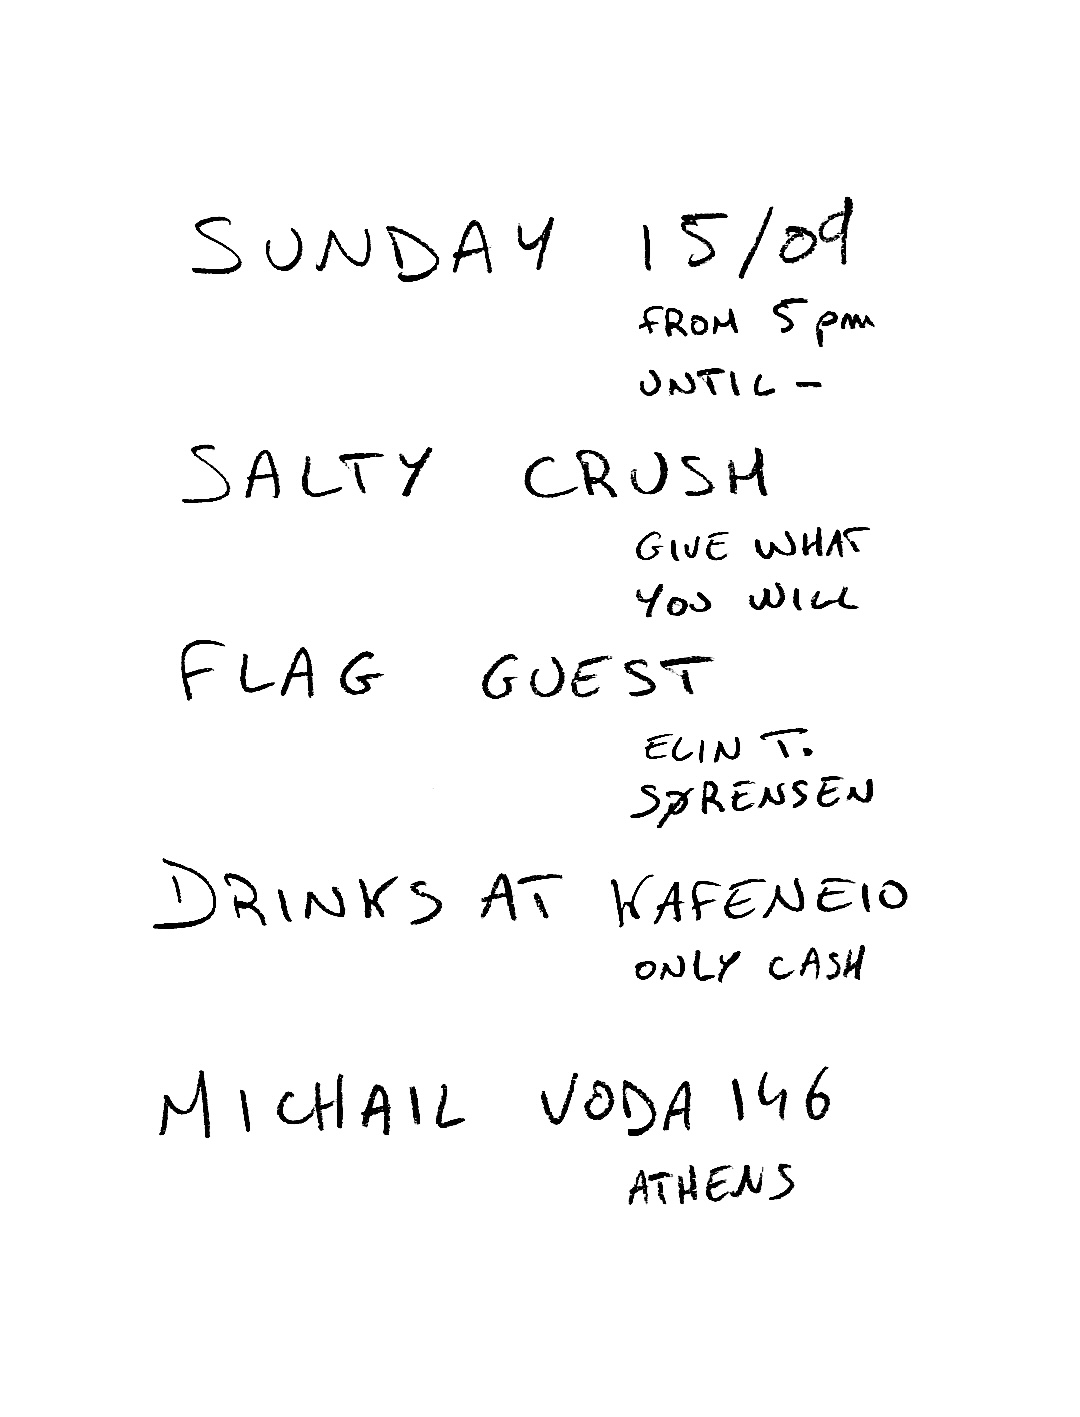 SUNDAY 15/09
FROM 5 pm
UNTIL –
SALTY CRUSH
GIVE WHAT
YOU WILL
FLAG GUEST
ELIN T.
SØRENSEN
DRINKS AT KAFENEIO
ONLY CASH
MICHAIL VODA 146
ATHENS